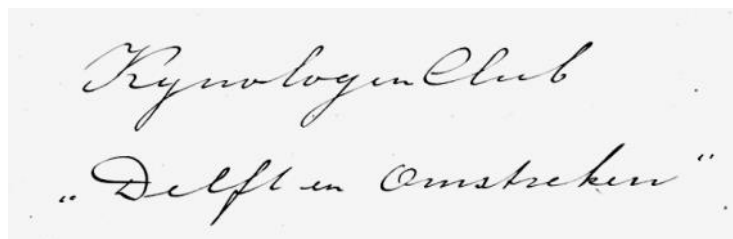 Kynologen Club
„Delft en Omstreken"